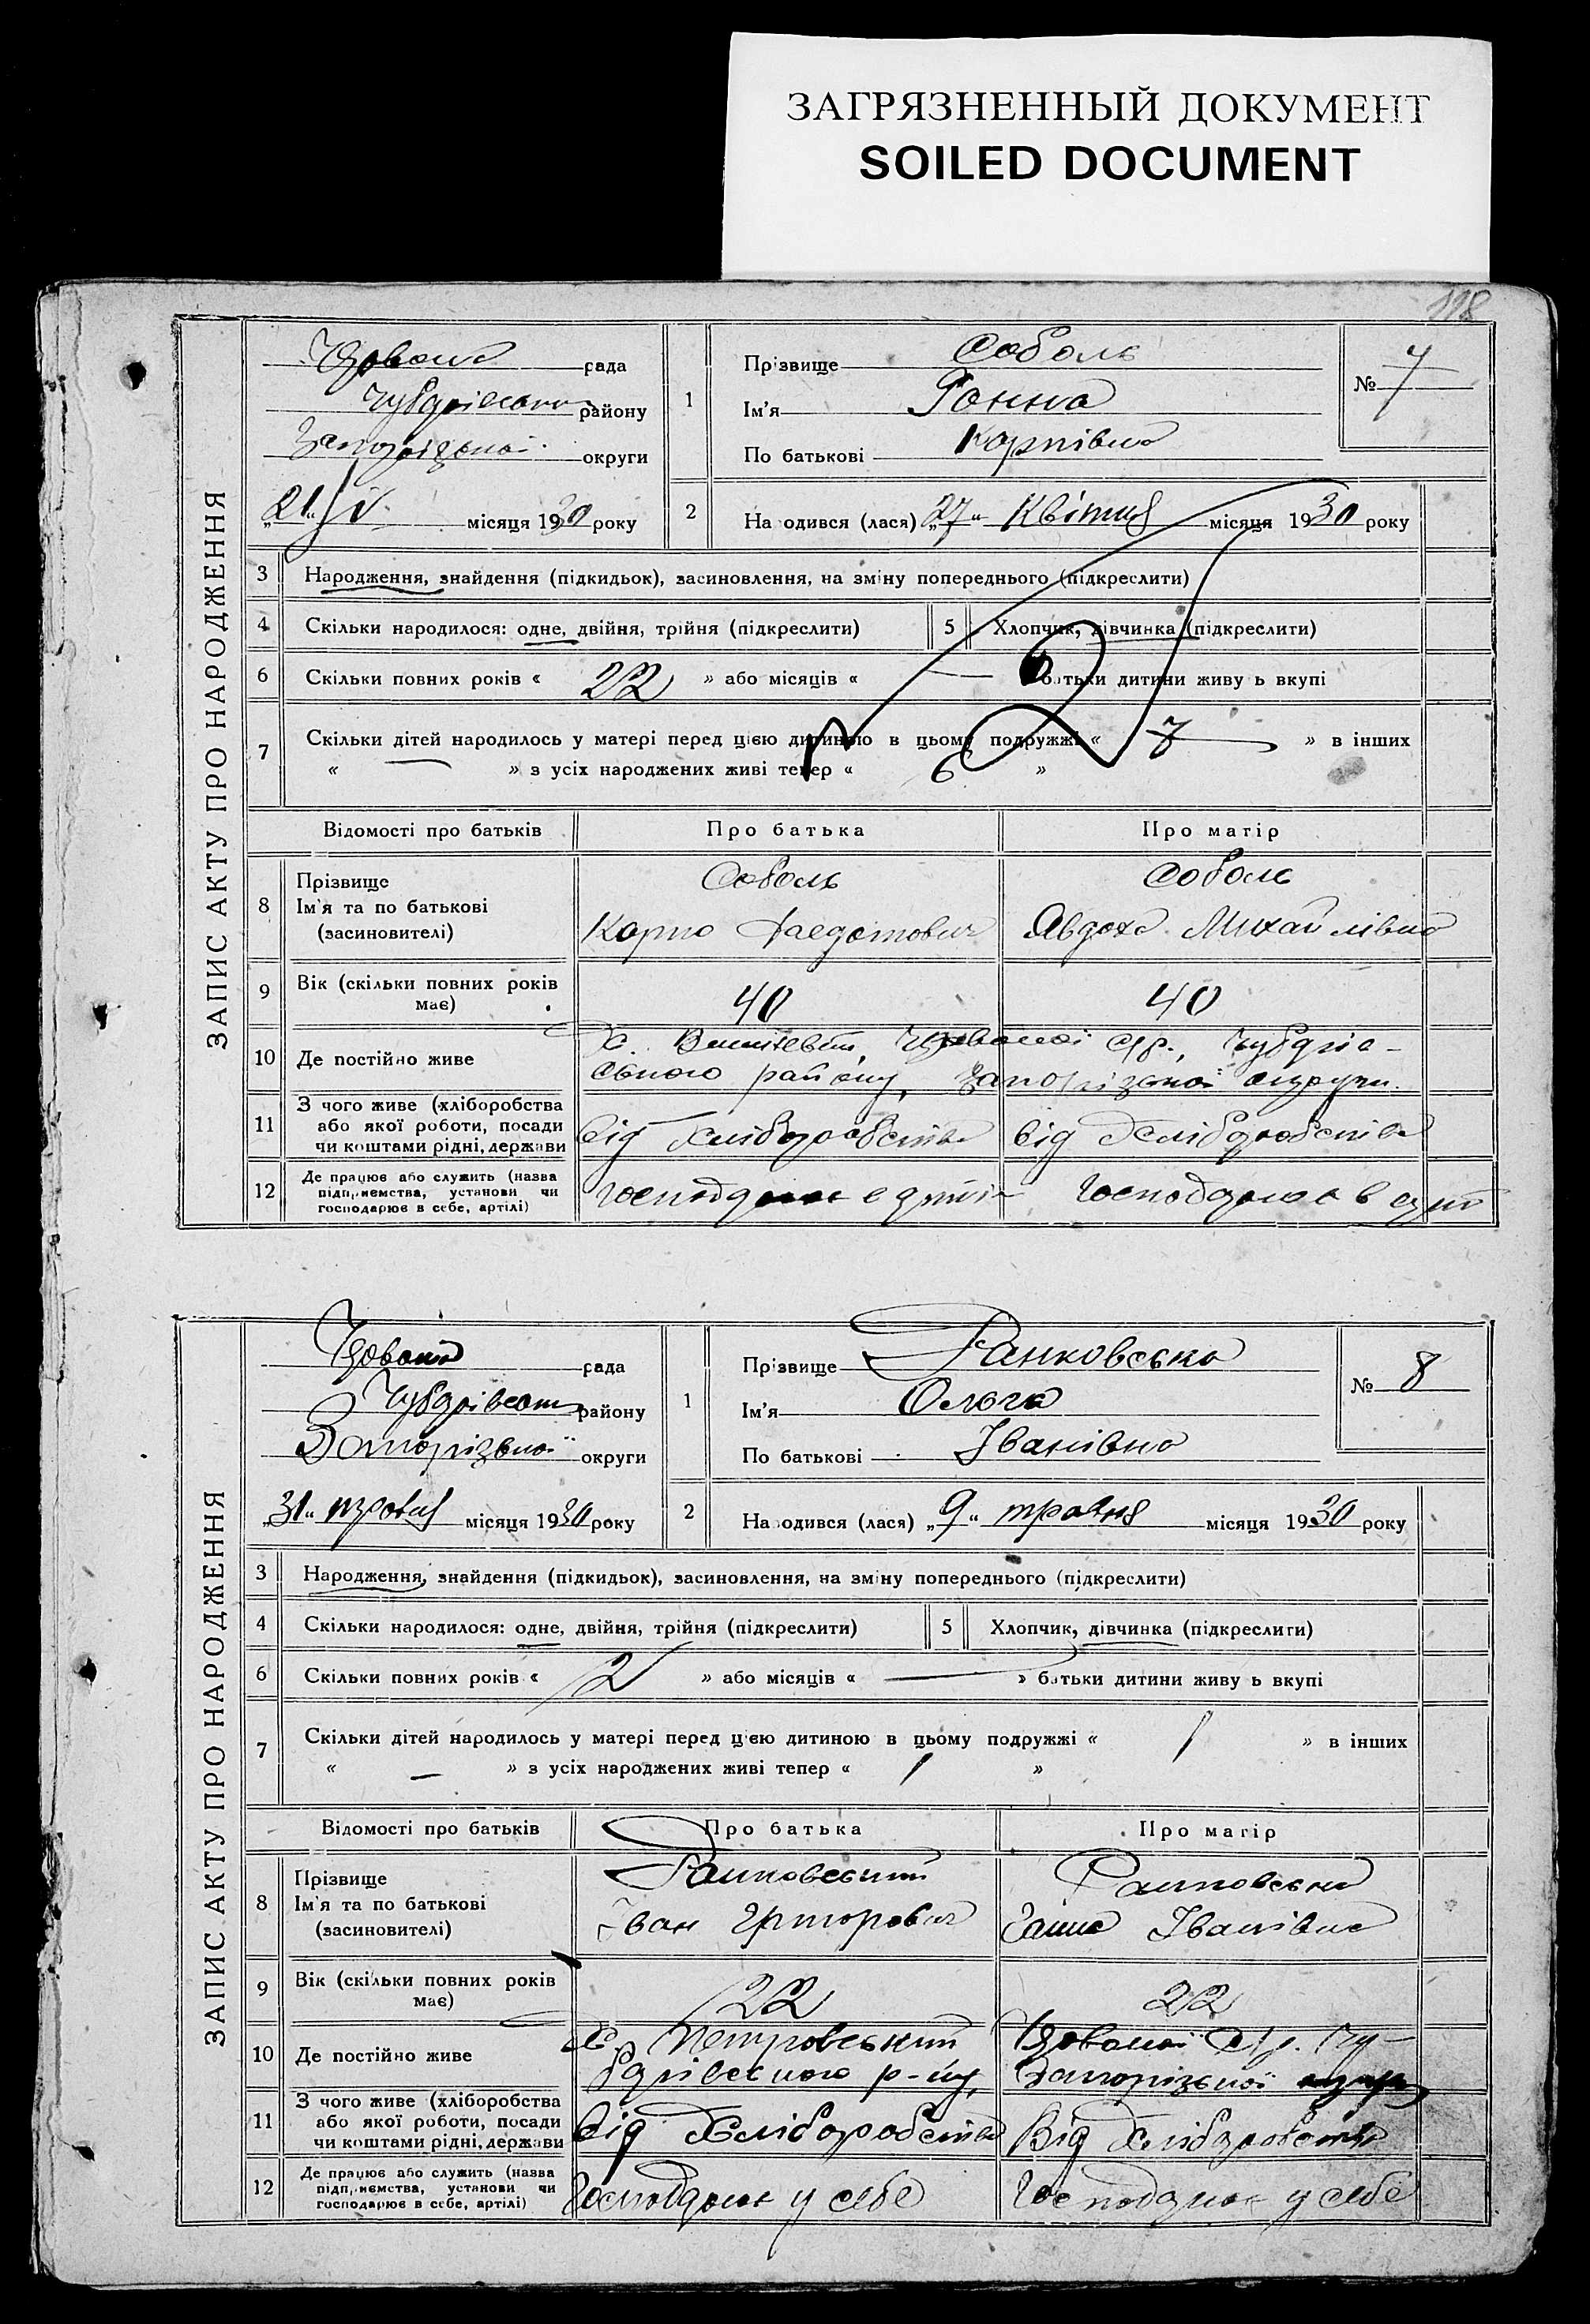 ЗАГРЯЗНЕННЫЙ ДОКУМЕНТ
SOILED DOCUMENT
118
ЗАПИС АКТУ ПРО НАРОДЖЕННЯ
рада
району
Запорізької округи
"21" IV місяця 1930 року
1
Прізвище Соболь
Ім'я Ганна
По батькові Карпівна
№ 7
2
Народився (лася) "27" Квітня місяця 1930 року
3 Народження, знайдення (підкидьок), засиновлення, на зміну попереднього (підкреслити)
4 Скільки народилося: одне, двійня, трійня (підкреслити) 5 Хлопчик, дівчинка (підкреслити)
6 Скільки повних років « 22 » або місяців « — батьки дитини живуть вкупі
7 Скільки дітей народилось у матері перед цією дитиною в цьому подружжі « 7 » в інших
« — » з усіх народжених живі тепер « 6 »
Відомості про батьків Про батька Про матір
8 Прізвище
Ім'я та по батькові
(засиновителі)
Соболь
Карпо
Соболь
Явдоха Михайлівна
9 Вік (скільки повних років
має)
40 40
10 Де постійно живе
Х. сг.,
ського району, Запорізької округи.
11 З чого живе (хліборобства
або якої роботи, посади
чи коштами рідні, держави
від хліборобства від хліборобства
12 Де працює або служить (назва
підприємства, установи чи
господарює в себе, артілі)
Господарює в артілі Господарює в
ЗАПИС АКТУ ПРО НАРОДЖЕННЯ
рада
району
Запорізької округи
"31" травня місяця 1930 року
1
Прізвище Ранковська
Ім'я Ольга
По батькові Іванівна
№ 8
2
Народився (лася) "9" травня місяця 1930 року
3 Народження, знайдення (підкидьок), засиновлення, на зміну попереднього (підкреслити)
4 Скільки народилося: одне, двійня, трійня (підкреслити) 5 Хлопчик, дівчинка (підкреслити)
6 Скільки повних років « 2 » або місяців « — » батьки дитини живуть вкупі
7 Скільки дітей народилось у матері перед цією дитиною в цьому подружжі « 1 » в інших
« — » з усіх народжених живі тепер « 1 »
Відомості про батьків Про батька Про матір
8 Прізвище
Ім'я та по батькові
(засиновителі)
Ранковський
Іван
Ранковська
Ганна Іванівна
9 Вік (скільки повних років
має)
22 22
10 Де постійно живе
х. Петровський
р-ну, Запорізької
11 З чого живе (хліборобства
або якої роботи, посади
чи коштами рідні, держави
Від хліборобства Від хліборобства
12 Де працює або служить (назва
підприємства, установи чи
господарює в себе, артілі)
Господарює у себе Господарює у себе